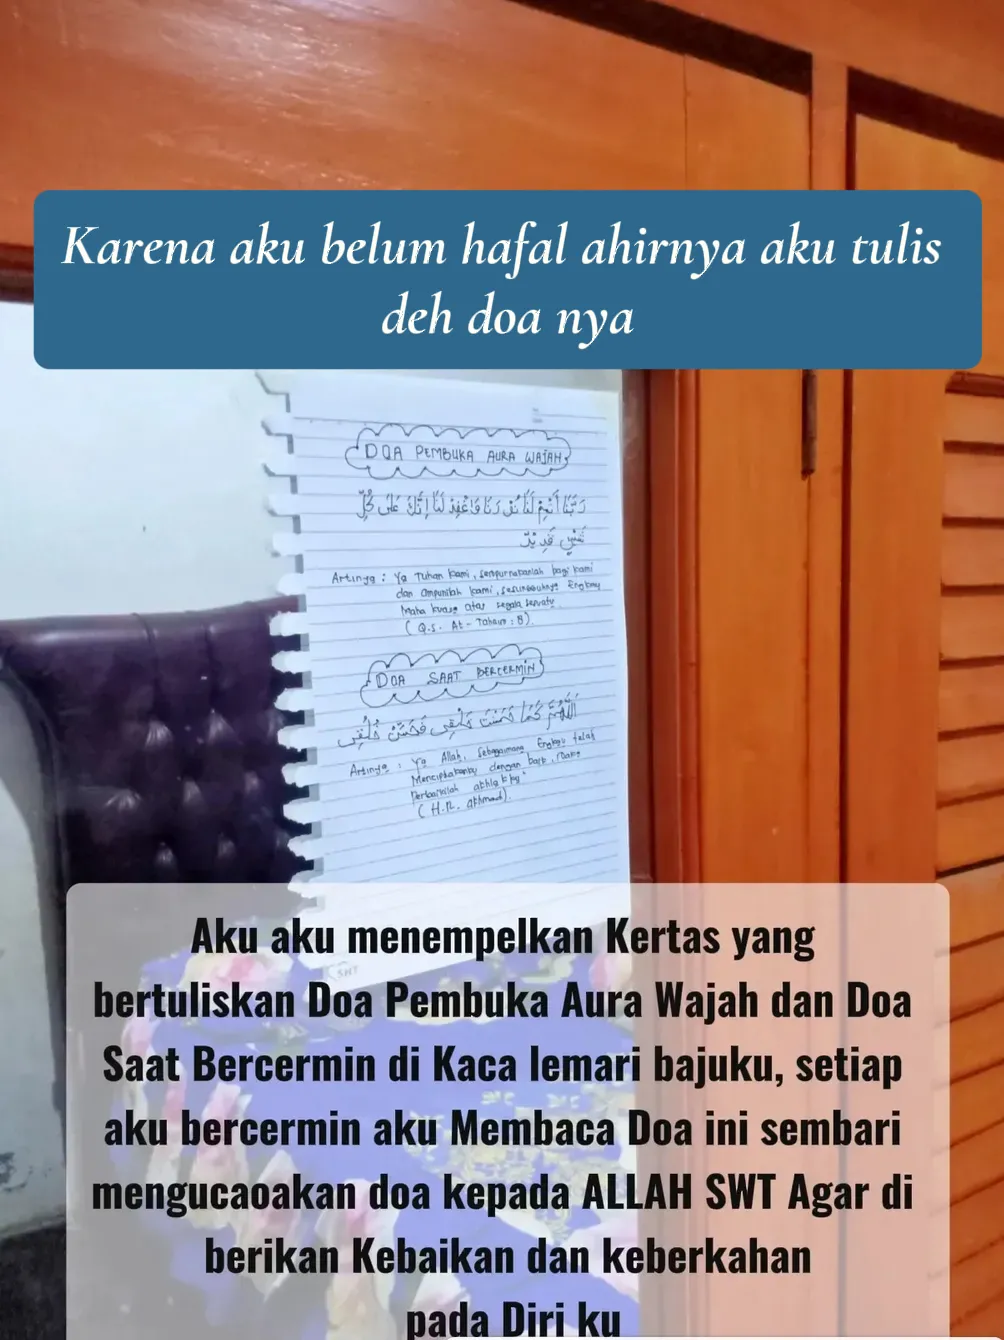 Karena aku belum hafal ahirnya aku tulis
deh doa nya
DOA PEMBUKA AURA WAJAH
رَبَّنَا أَتْمِمْ لَنَا نُوْرَنَا وَاغْفِرْ لَنَا إِنَّكَ عَلَى كُلِّ
شَيْءٍ قَدِيْرٌ
Artinya : Ya Tuhan kami, sempurnakanlah bagi kami
dan ampunilah kami, sesungguhnya Engkau
Maha kuasa atas segala sesuatu
( Q.S. At - Tahrim : 8).
DOA SAAT BERCERMIN
اَللّٰهُمَّ كَمَا حَسَّنْتَ خَلْقِى فَحَسِّنْ خُلُقِى
Artinya : Ya Allah, sebagaimana Engkau telah
Menciptakanku dengan baik, maka
Perbaikilah akhlakku"
( H.R. Akhmad).
Aku aku menempelkan Kertas yang
bertuliskan Doa Pembuka Aura Wajah dan Doa
Saat Bercermin di Kaca lemari bajuku, setiap
aku bercermin aku Membaca Doa ini sembari
mengucaoakan doa kepada ALLAH SWT Agar di
berikan Kebaikan dan keberkahan
pada Diri ku